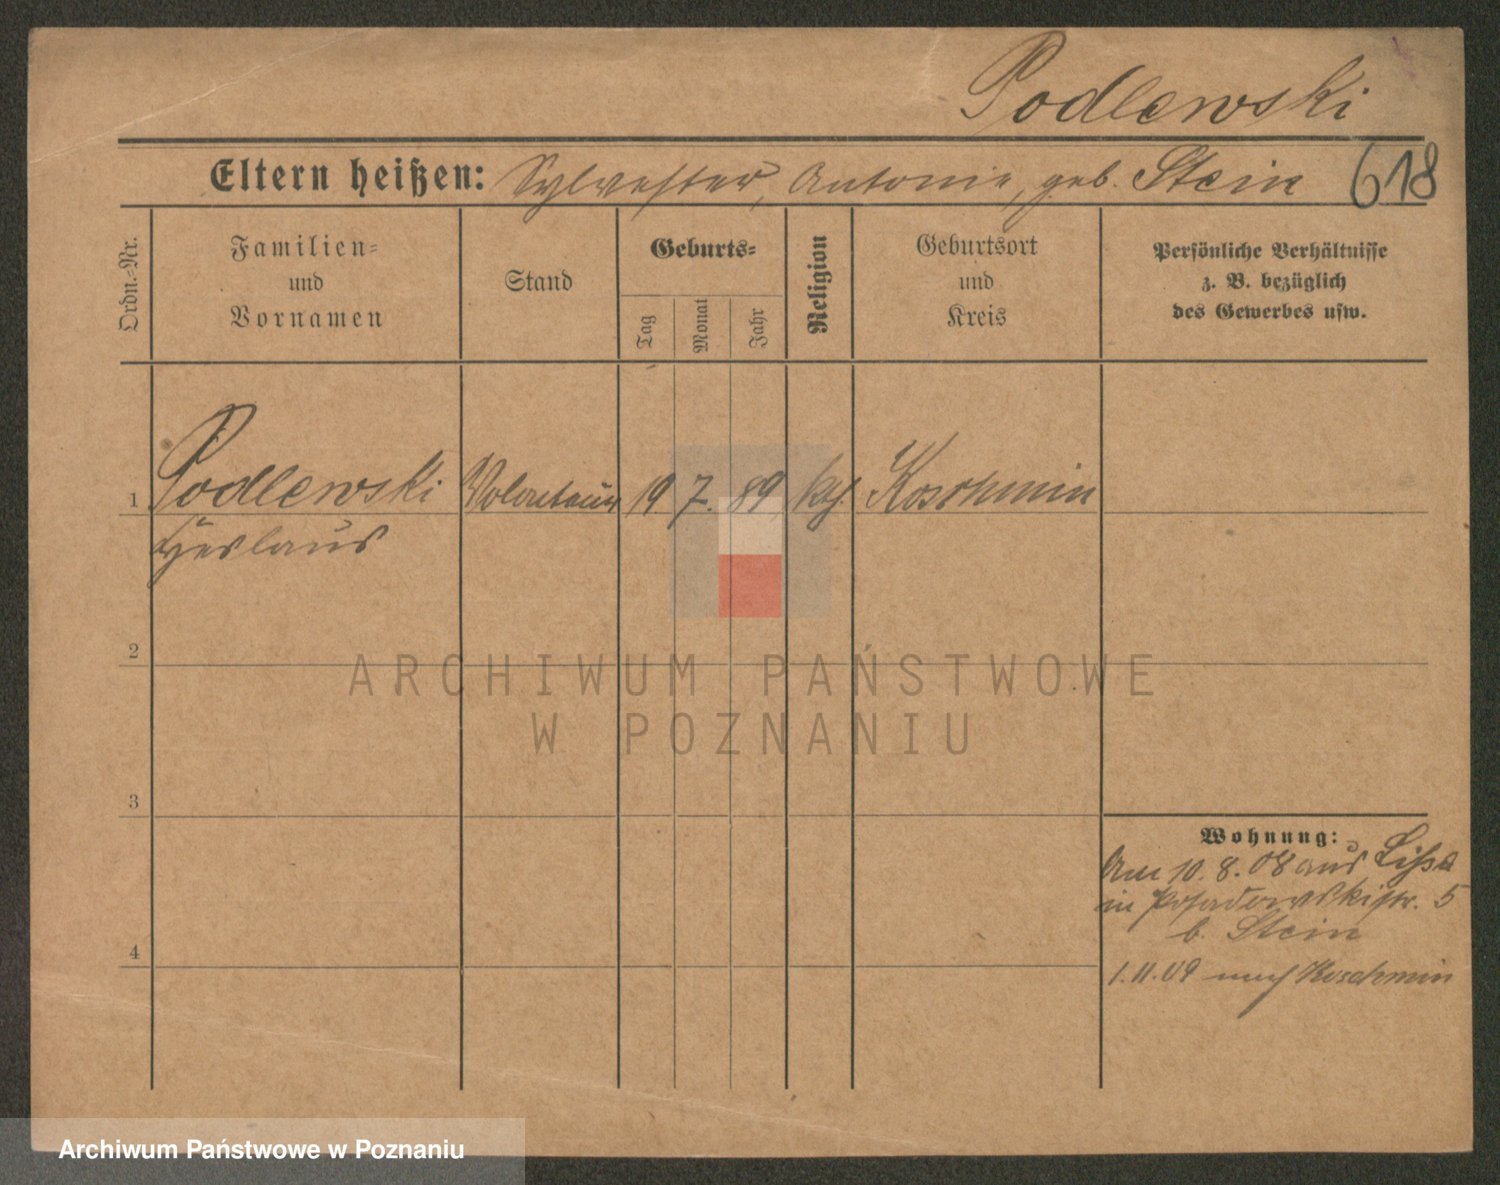 Podlewski
Eltern heißen: Sylvester, Antonie, geb. Stein 618
Ordn.=Nr.
Familien=
und
Vornamen
Stand
Geburts=
Tag
Monat
Jahr
Religion
Geburtsort
und
Kreis
Persönliche Verhältnisse
z. B. bezüglich
des Gewerbes usw.
1 Podlewski Volontair 19 7. 89 kth. Koschmin
2
3
4
Wohnung:
Am 10. 8. 08 aus Lissa
in Posadowskistr. 5
b. Stein
1. 11. 09 nach Koschmin
ARCHIWUM PAŃSTWOWE
W POZNANIU
Archiwum Państwowe w Poznaniu